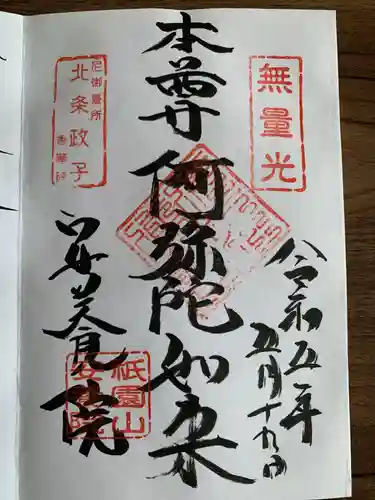 無量光
令和五年
五月十九日
本尊 阿弥陀如来
尼御墓所
北条政子
香華院
安養院
祇園山
安養院